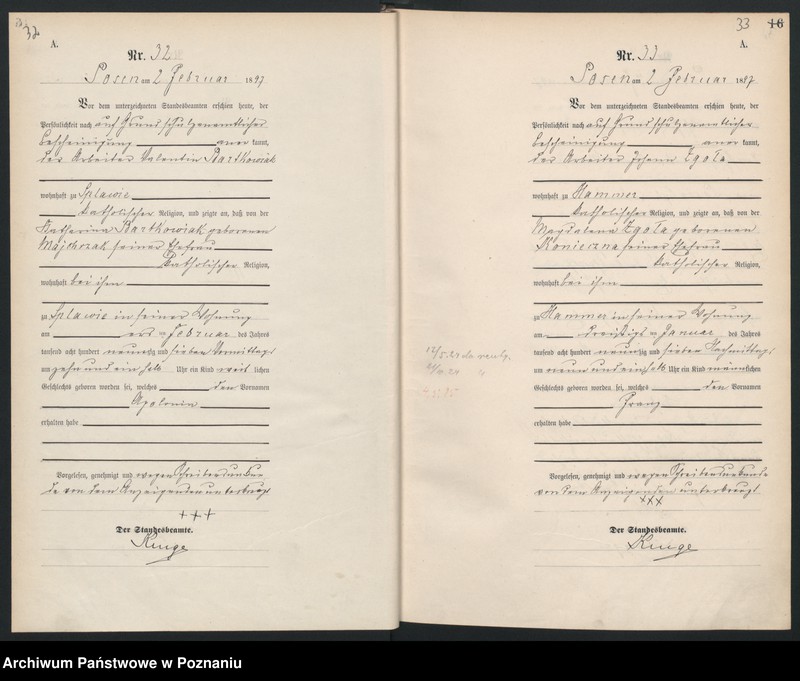 32
A.
Nr. 32
Posen am 2 Februar 1897
Vor dem unterzeichneten Standesbeamten erschien heute, der
Persönlichkeit nach auf Grund schulzenamtlicher
Bescheinigung anerkannt,
der Arbeiter Valentin Bartkowiak
wohnhaft zu Splawie
katholischer Religion, und zeigte an, daß von der
Katharina Bartkowiak geborenen
Majchrzak seiner Ehefrau
katholischer Religion,
wohnhaft bei ihm
zu Splawie in seiner Wohnung
am ersten Februar des Jahres
tausend acht hundert neunzig und sieben Vormittags
um zehn und ein halb Uhr ein Kind weiblichen
Geschlechts geboren worden sei, welches den Vornamen
Apolonia
erhalten habe
Vorgelesen, genehmigt und wegen Schreibensunkun-
de von dem Anzeigenden unterkreuzt
+++
Der Standesbeamte.
Kruge
33 16
A.
Nr. 33
Posen am 2 Februar 1897
Vor dem unterzeichneten Standesbeamten erschien heute, der
Persönlichkeit nach auf Grund schulzenamtlicher
Bescheinigung anerkannt,
der Arbeiter Johann Zgoła
wohnhaft zu Hammer
katholischer Religion, und zeigte an, daß von der
Magdalena Zgoła geborenen
Konieczna seiner Ehefrau
katholischer Religion,
wohnhaft bei ihm
zu Hammer in seiner Wohnung
am dreißigsten Januar des Jahres
tausend acht hundert neunzig und sieben Nachmittags
um neun und ein halb Uhr ein Kind männlichen
Geschlechts geboren worden sei, welches den Vornamen
Franz
erhalten habe
Vorgelesen, genehmigt und wegen Schreibensunkunde
von dem Anzeigenden unterkreuzt
xxx
Der Standesbeamte.
Kruge
Archiwum Państwowe w Poznaniu